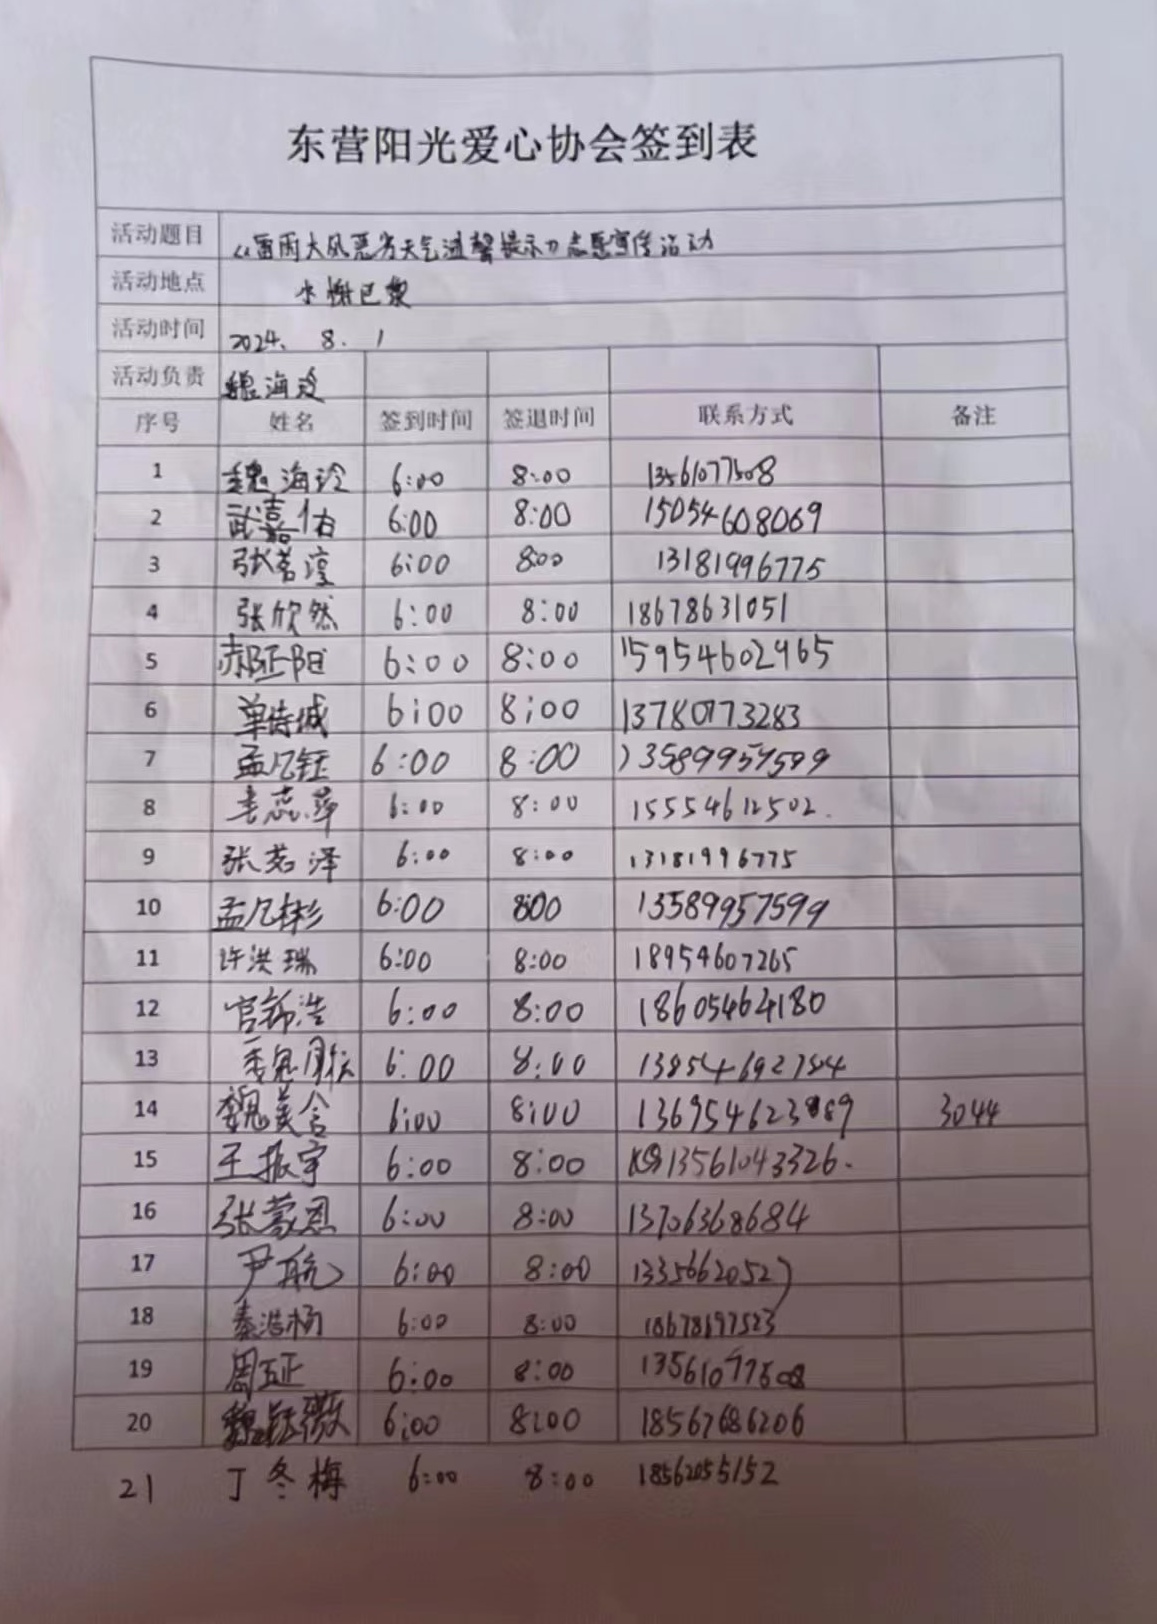 东营阳光爱心协会签到表
活动题目 《雷雨大风恶劣天气温馨提示》志愿宣传活动
活动地点 水榭巴黎
活动时间 2024. 8. 1
活动负责 魏海玲
序号 姓名 签到时间 签退时间 联系方式 备注
1 魏海玲 6:00 8:00 13561077508
2 武嘉佑 6:00 8:00 15054608069
3 张茗淳 6:00 8:00 13181996775
4 张欣然 6:00 8:00 18678631051
5 郝延阳 6:00 8:00 15954602965
6 单诗城 6:00 8:00 13780773283
7 孟凡钰 6:00 8:00 13589957599
8 李蕊萍 6:00 8:00 15554612502.
9 张茗泽 6:00 8:00 13181996775
10 孟凡彬 6:00 8:00 13589957599
11 许洪瑞 6:00 8:00 18954607265
12 6:00 8:00 18605464180
13 6:00 8:00
14 魏美含 6:00 8:00 3044
15 王振宇 6:00 8:00 13561043326.
16 张蒙恩 6:00 8:00 13706368684
17 尹航 6:00 8:00 13356620527
18 秦浩杨 6:00 8:00 18678697523
19 周五正 6:00 8:00 13561077508
20 魏钰薇 6:00 8:00 18567686206
21 丁冬梅 6:00 8:00 18562055152